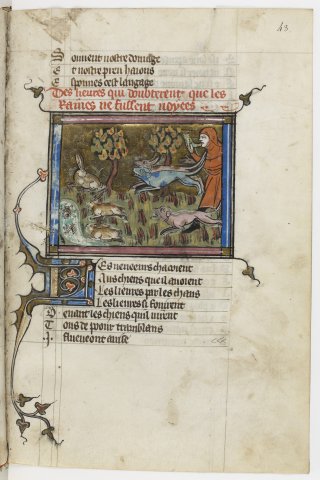 43.
Souuent nostre domage
Et nostre preu haions
cest langage
Des lieures qui doubterent que les
Raines ne fussent noyees
Les veneeurs chacoient
Aus chiens que il auoient
Les lieures par les chans
Les lieures si fouirent
Deuant les chiens quil virent
Tous de poour tramblans